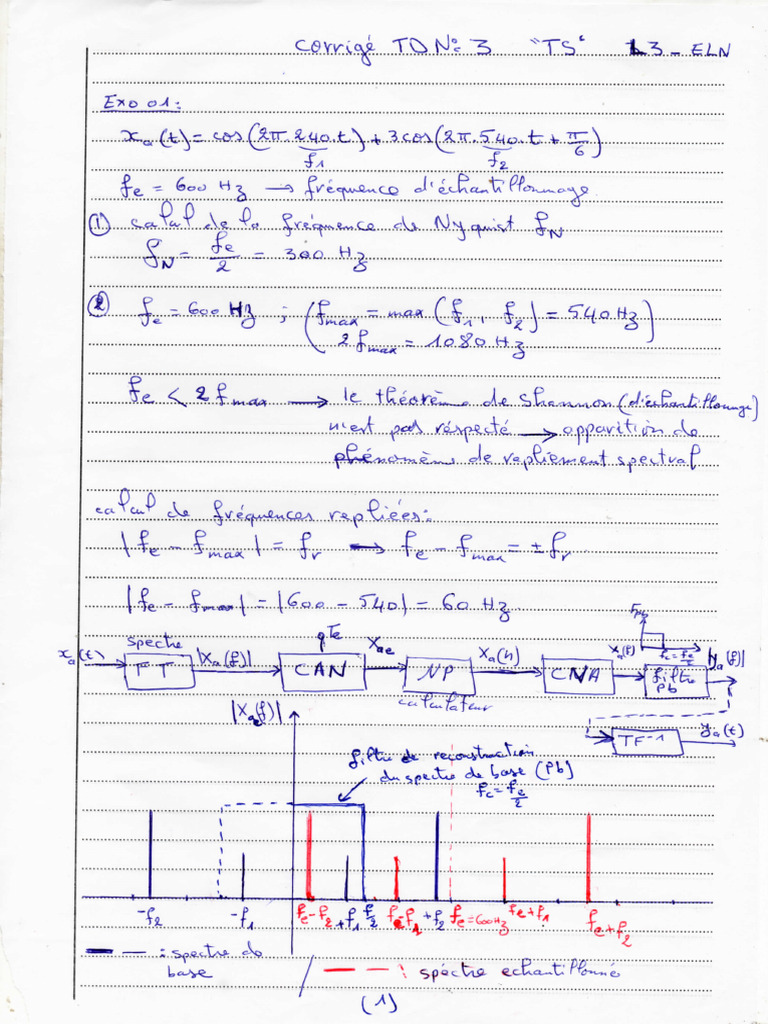 Corrigé TD N°: 3 "TS" L3 - ELN
Exo 01:
xₐ(t) = cos(2π.240.t) + 3cos(2π.540.t + π/6)
f1 f2
fe = 600 Hz → fréquence d'échantillonnage.
① calcul de la fréquence de Nyquist fN
fN = fe/2 = 300 Hz
② fe = 600 Hz ; (fmax = max (f1, f2) = 540 Hz)
2 fmax = 1080 Hz
fe < 2 fmax → le théorème de Shannon (d'échantillonnage)
n'est pas réspecté → apparition de
phénomène de repliement spectral
calcul de fréquences repliées:
|fe - fmax| = fr → fe - fmax = ± fr
|fe - fmax| = |600 - 540| = 60 Hz
spectre qTe Fpb
fc = fe/2
xₐ(t) FT |Xₐ(f)| CAN Xae NP Xₐ(n) CNA Xₐ(f) filtre Pb |Yₐ(f)|
calculateur
TF-1 yₐ(t)
|Xae(f)|
filtre de reconstruction
du spectre de base (Pb)
fc = fe/2
-f2 -f1 fe-f2 +f1 fe/2 fe-f1 +f2 fe=600Hz fe+f1 fe+f2
: spectre de
base / spéctre echantillonné
(1)